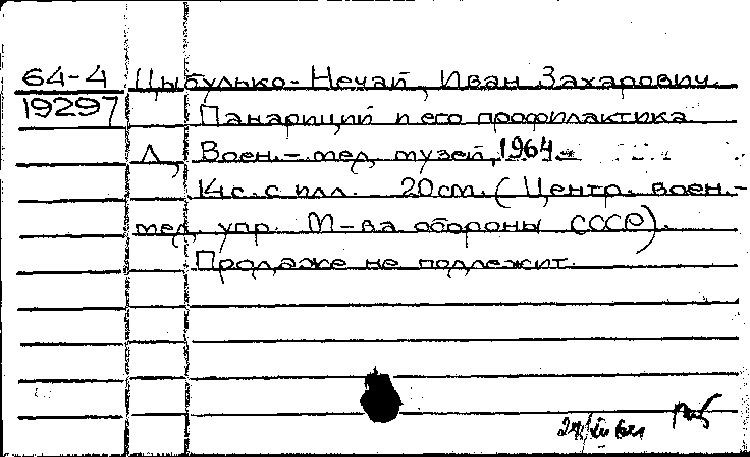 64-4 Цыбулько-Нечай, Иван Захарович.
19297 Панариций и его профилактика
Л., Воен.-мед. музей, 1964.
14с. с илл. 20см. (Центр. воен.-
мед. упр. М-ва обороны СССР).
Продаже не подлежит.